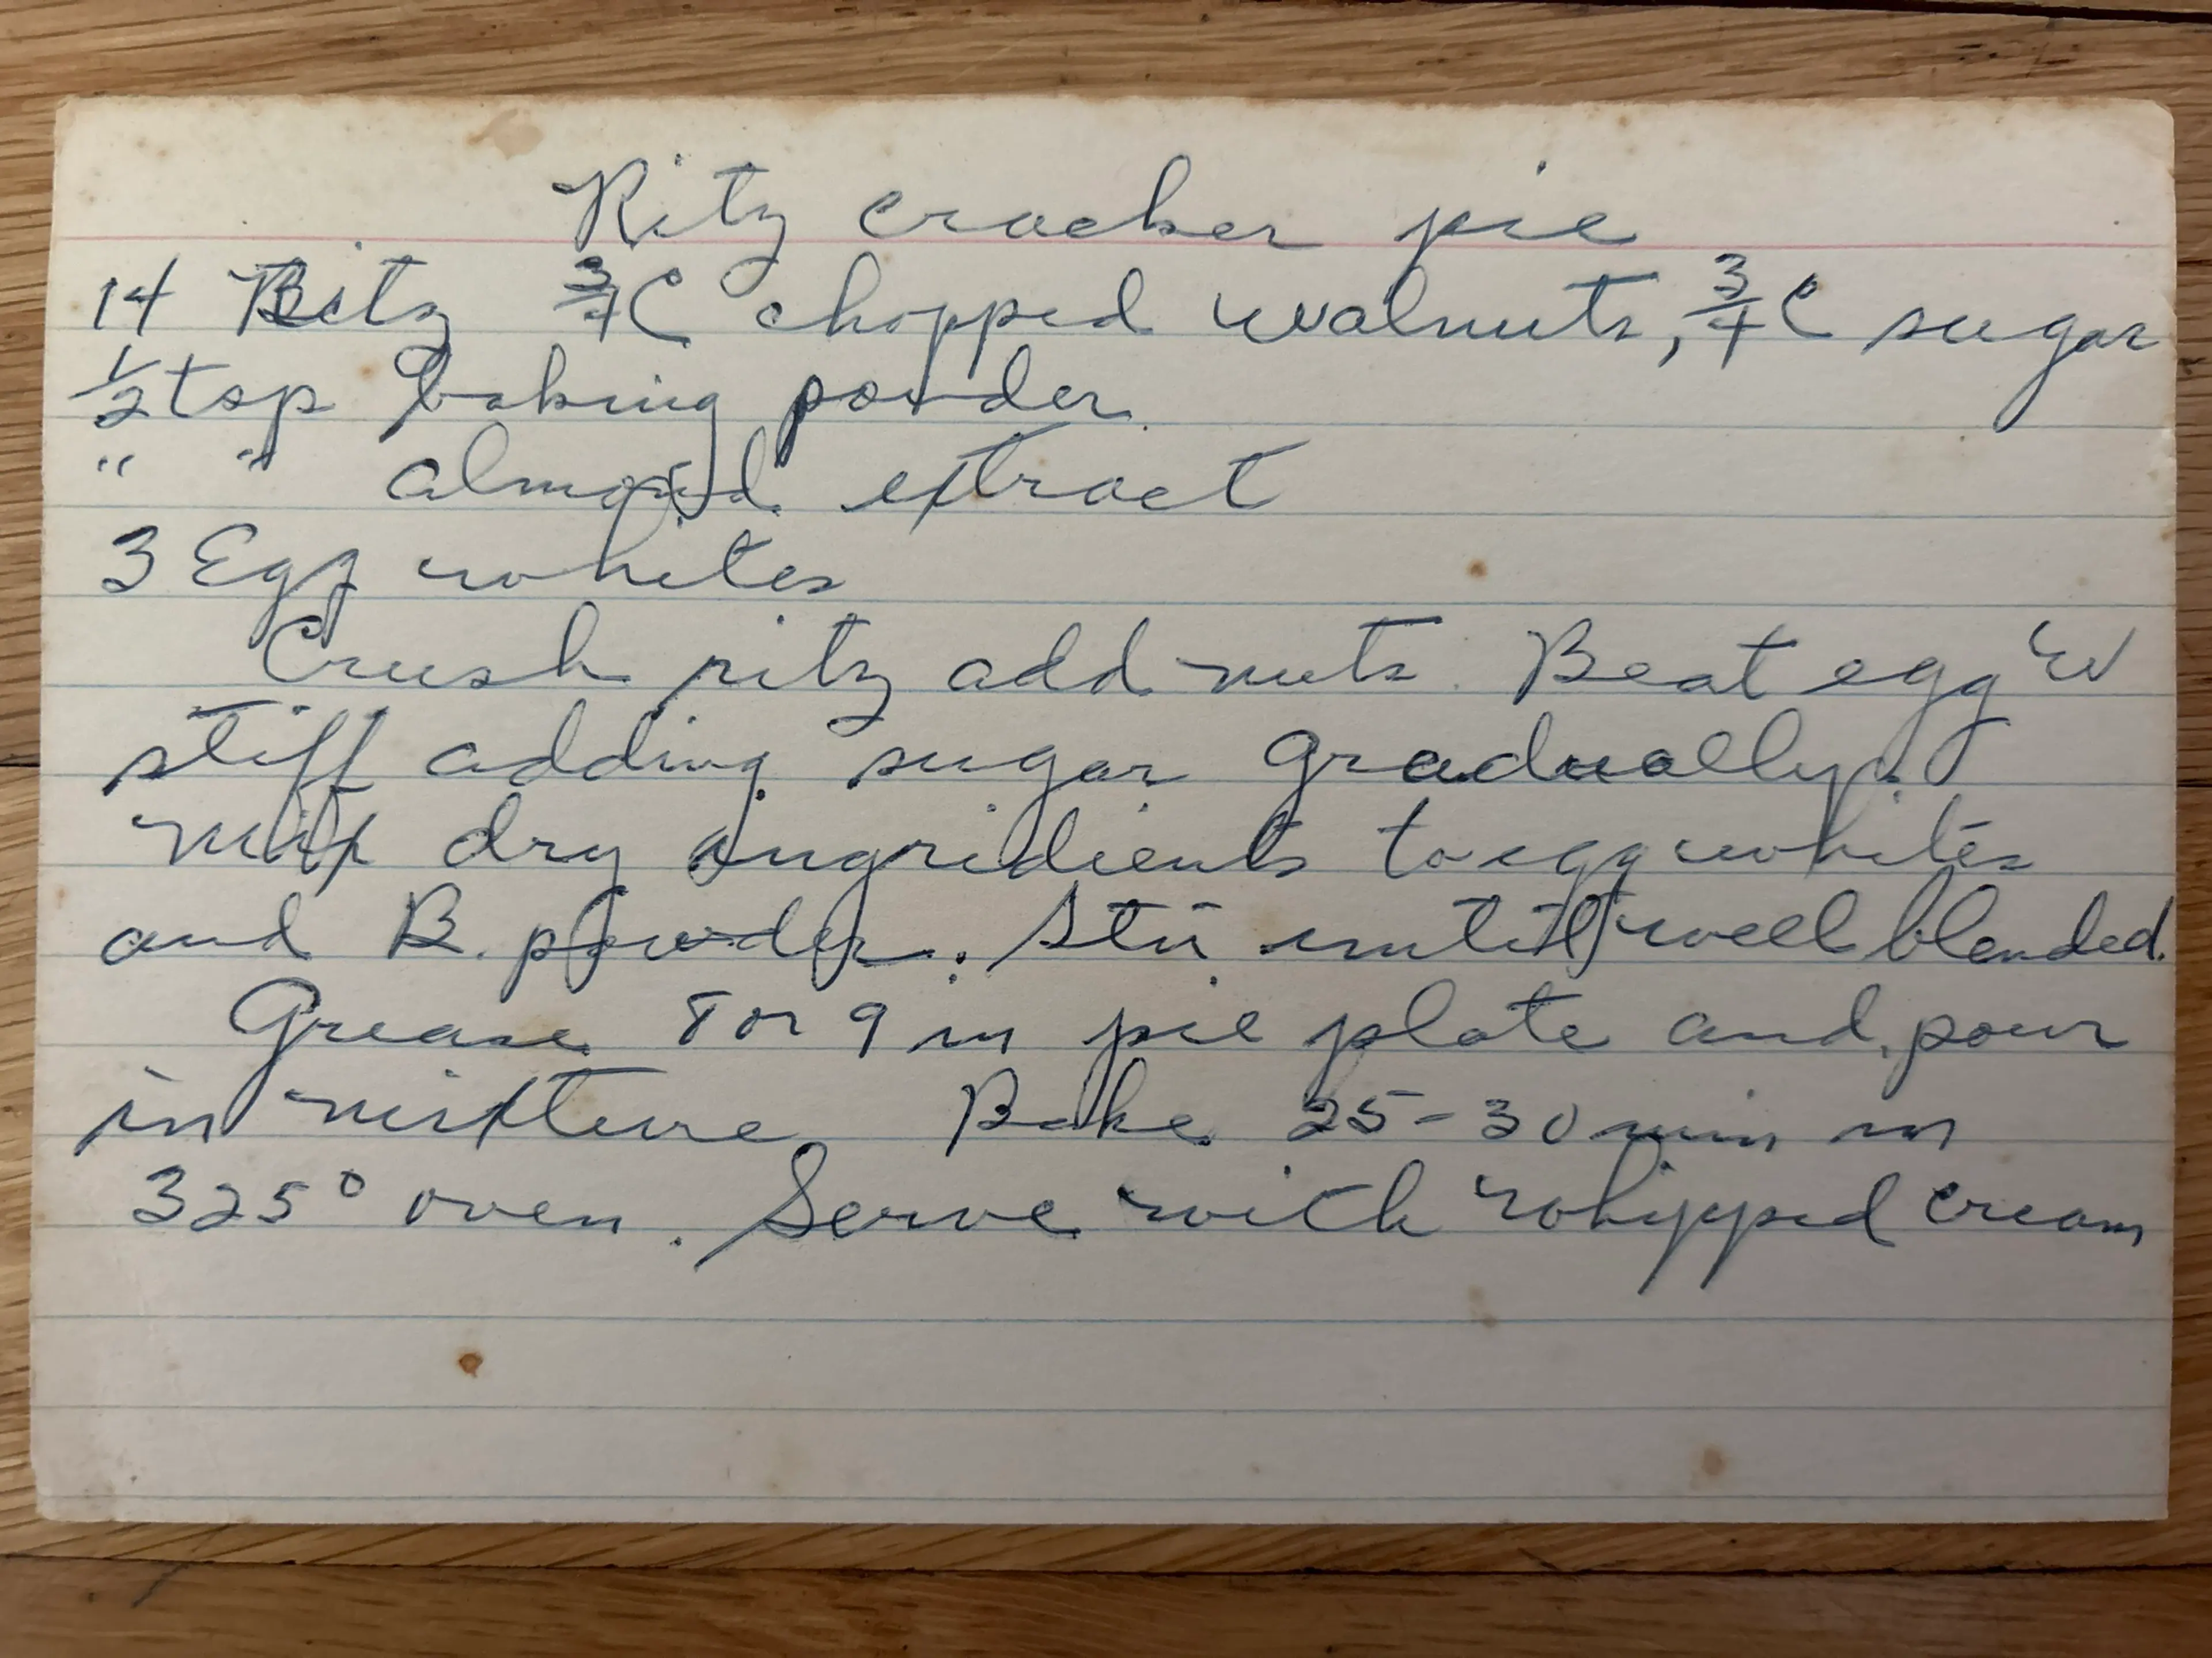 Ritz cracker pie
14 Ritz 3/4 C chopped walnuts, 3/4 C sugar
1/2 tsp baking powder.
" " almond extract
3 Egg whites
Crush ritz add nuts. Beat egg W
stiff adding sugar gradually.
mix dry ingridients to egg whites
and B. powder. Stir until well blended.
Grease 8 or 9 in pie plate and pour
in mixture Bake 25-30 min in
325° oven. Serve with whipped cream